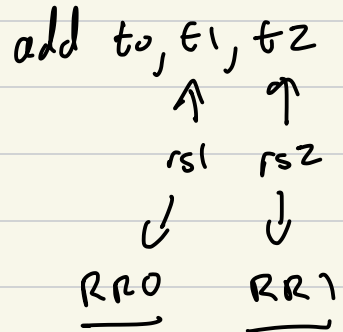 add t0, t1, t2
rs1 rs2
RR0 RR1